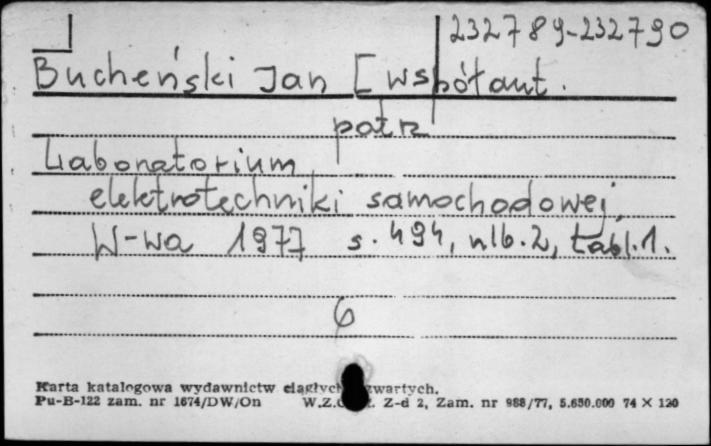 232789-232790
Bucheński Jan [współaut.
patrz
Laboratorium
elektrotechniki samochodowej,
W-wa 1977 s. 494, nlb. 2, tabl. 1.
6
Karta katalogowa wydawnictw ciągłych zwartych.
Pu-B-122 zam. nr 1674/DW/On W.Z. Z-d 2, Zam. nr 988/77, 5.650.000 74 × 120